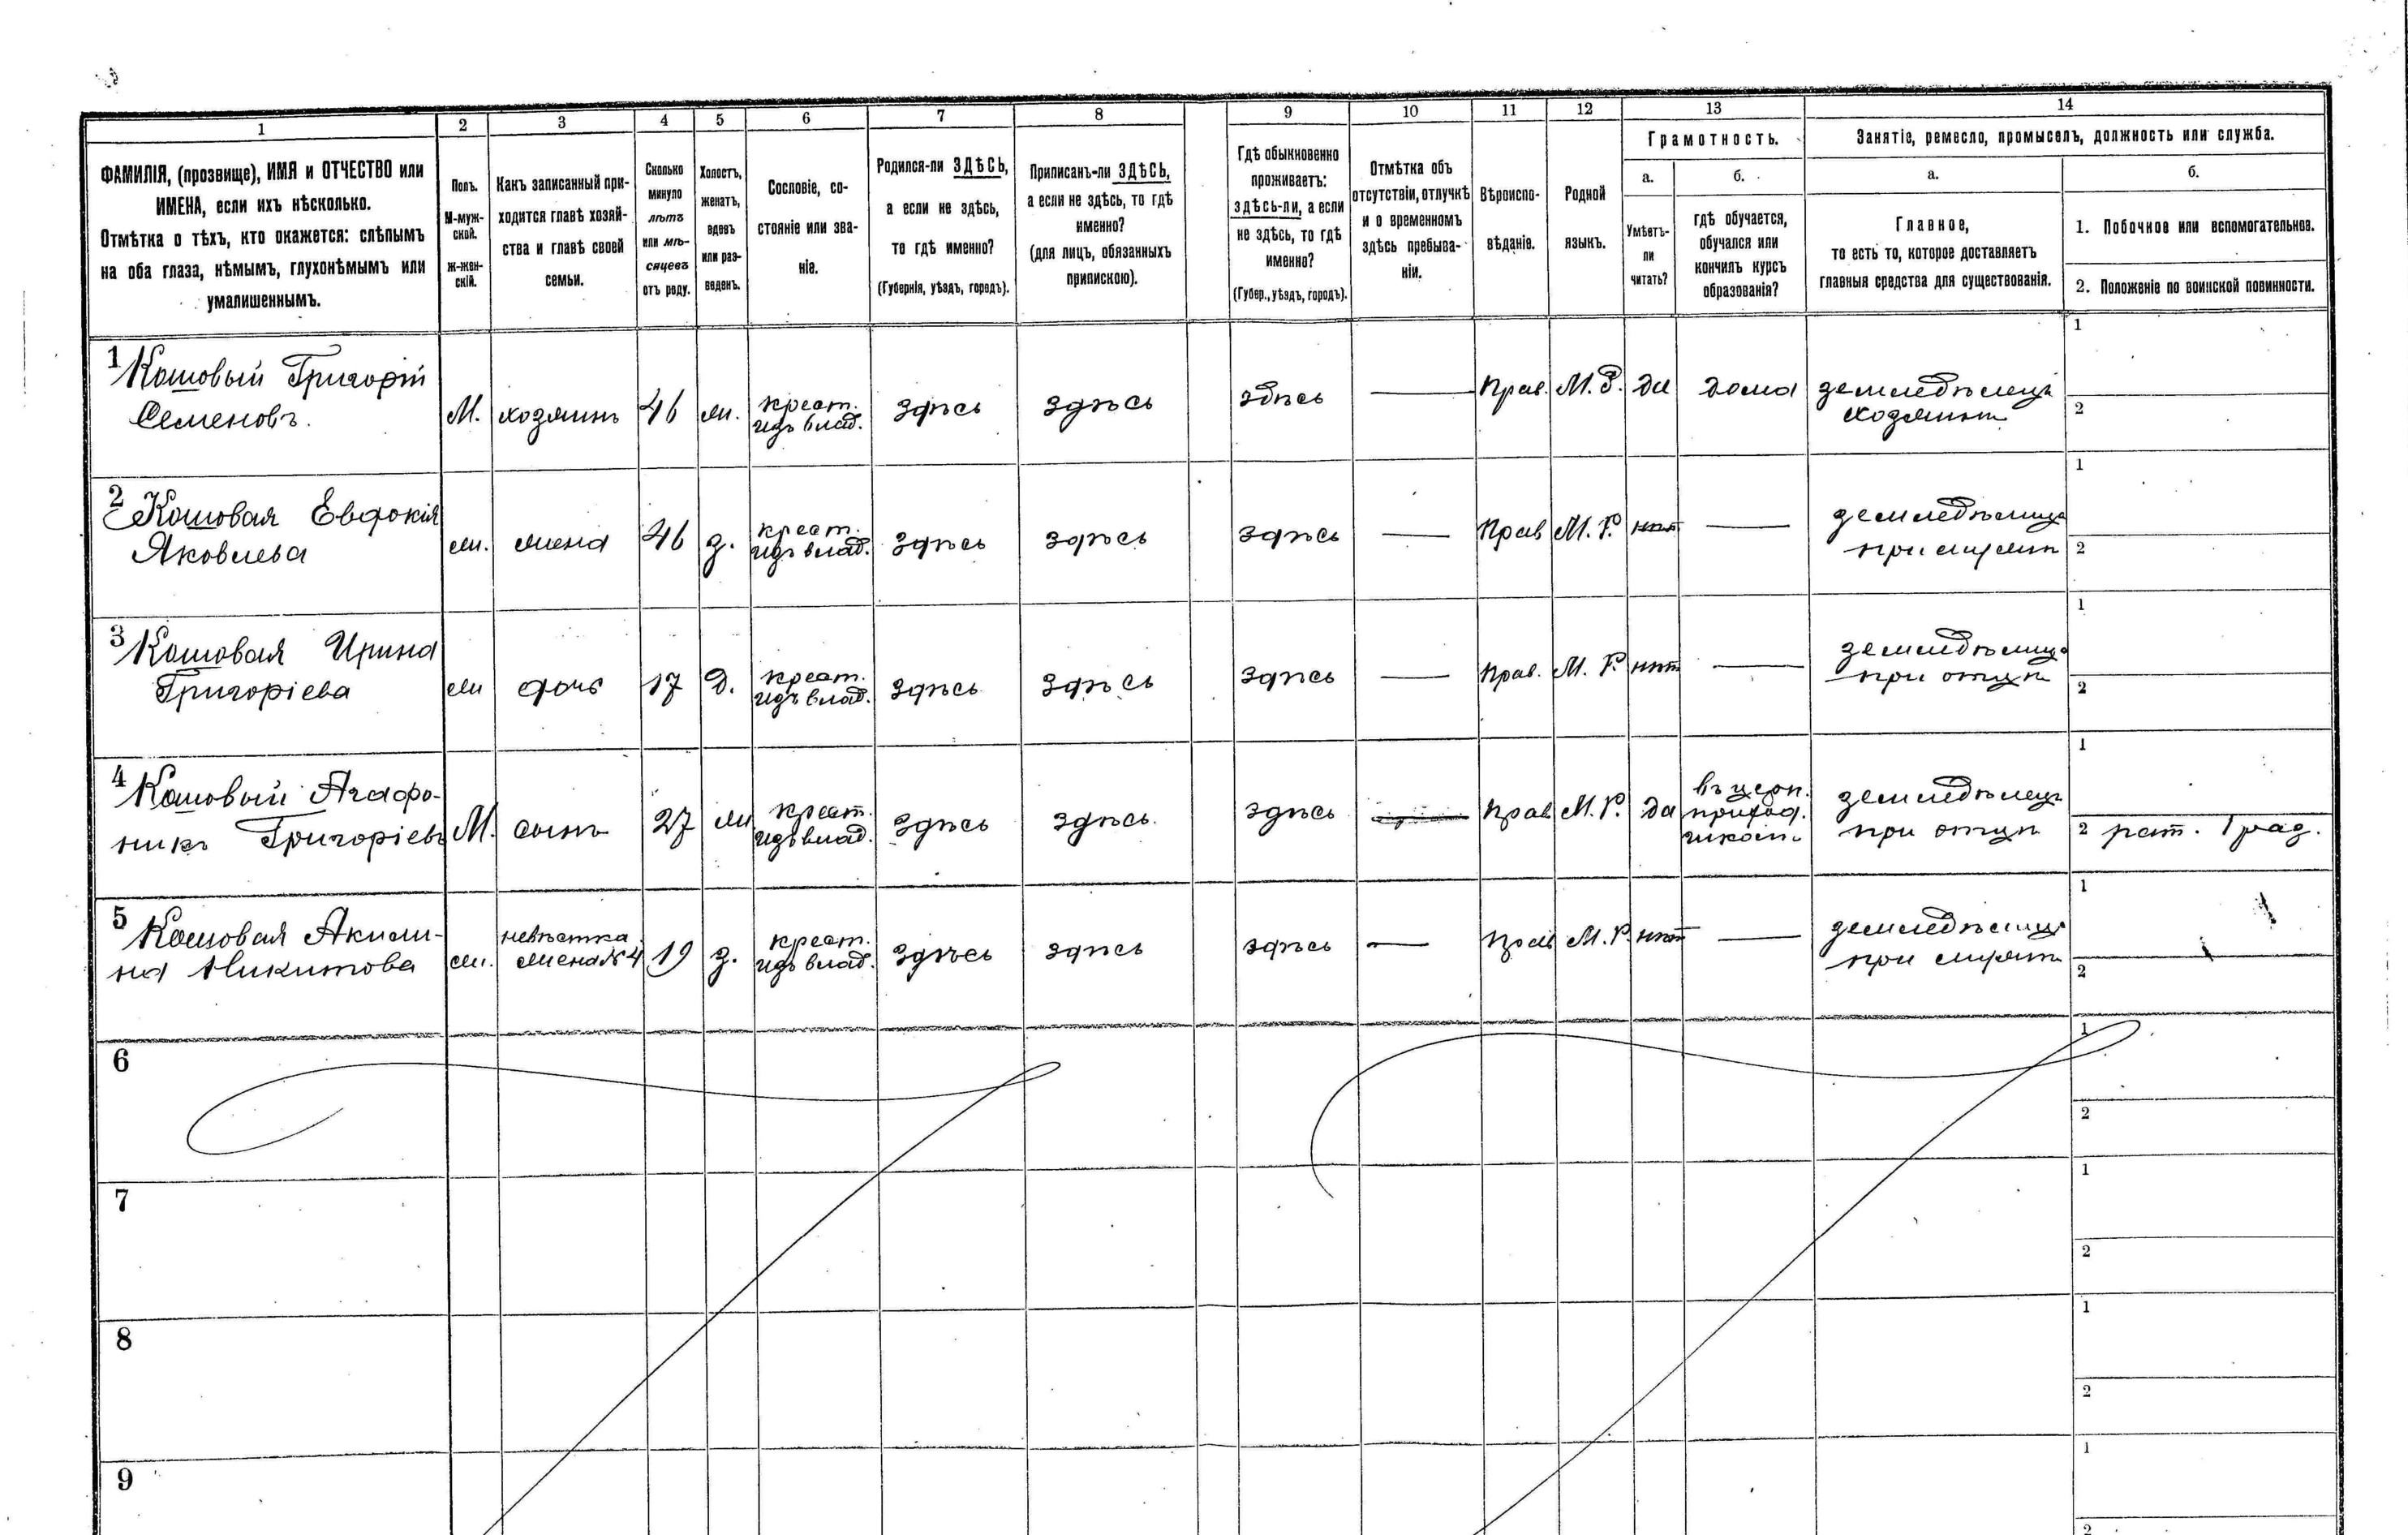 1
2
3
4
5
6
7
8
9
10
11
12
13
14
ФАМИЛІЯ, (прозвище), ИМЯ и ОТЧЕСТВО или
ИМЕНА, если ихъ нѣсколько.
Отмѣтка о тѣхъ, кто окажется: слѣпымъ
на оба глаза, нѣмымъ, глухонѣмымъ или
умалишеннымъ.
Полъ.
М-муж-
ской.
Ж-жен-
скій.
Какъ записанный при-
ходится главѣ хозяй-
ства и главѣ своей
семьи.
Сколько
минуло
лѣтъ
или мѣ-
сяцевъ
отъ роду.
Холостъ,
женатъ,
вдовъ
или раз-
веденъ.
Сословіе, со-
стояніе или зва-
ніе.
Родился-ли ЗДѢСЬ,
а если не здѣсь,
то гдѣ именно?
(Губернія, уѣздъ, городъ).
Приписанъ-ли ЗДѢСЬ,
а если не здѣсь, то гдѣ
именно?
(для лицъ, обязанныхъ
припискою).
Гдѣ обыкновенно
проживаетъ:
здѣсь-ли, а если
не здѣсь, то гдѣ
именно?
(Губер., уѣздъ, городъ).
Отмѣтка объ
отсутствіи, отлучкѣ
и о временномъ
здѣсь пребыва-
ніи.
Вѣроиспо-
вѣданіе.
Родной
языкъ.
Грамотность.
а.
Умѣетъ-
ли
читать?
б.
гдѣ обучается,
обучался или
кончилъ курсъ
образованія?
Занятіе, ремесло, промыселъ, должность или служба.
а.
Главное,
то есть то, которое доставляетъ
главныя средства для существованія.
б.
1. Побочное или вспомогательное.
2. Положеніе по воинской повинности.
1 Кошовый Григорій
Семеновъ.
М.
хозяинъ
46
ж.
крест.
изъ влад.
здѣсь
здѣсь
здѣсь
Прав.
М. Р.
да
дома
земледѣлецъ
хозяинъ
1
2
2 Кошовая Евдокія
Яковлева
ж.
жена
46
з.
крест.
изъ влад.
здѣсь
здѣсь
здѣсь
Прав
М. Р.
нѣт
земледѣлица
при мужѣ
1
2
3 Кошовая Ирина
Григоріева
ж
дочь
17
д.
крест.
изъ влад.
здѣсь
здѣсь
здѣсь
Прав.
М. Р.
нѣт
земледѣлица
при отцѣ
1
2
4 Кошовый Агафо-
никъ Григоріевъ
М.
сынъ
27
ж
крест.
изъ влад.
здѣсь
здѣсь
здѣсь
Прав
М. Р.
да
въ церк.
приход.
школ.
земледѣлецъ
при отцѣ
1
2 рат. 1 раз.
5 Кошовая Акили-
на Никитова
ж.
невѣстка
жена № 4
19
з.
крест.
изъ влад.
здѣсь
здѣсь
здѣсь
Прав
М. Р.
нѣт
земледѣлица
при мужѣ
1
2
6
1
2
7
1
2
8
1
2
9
1
2